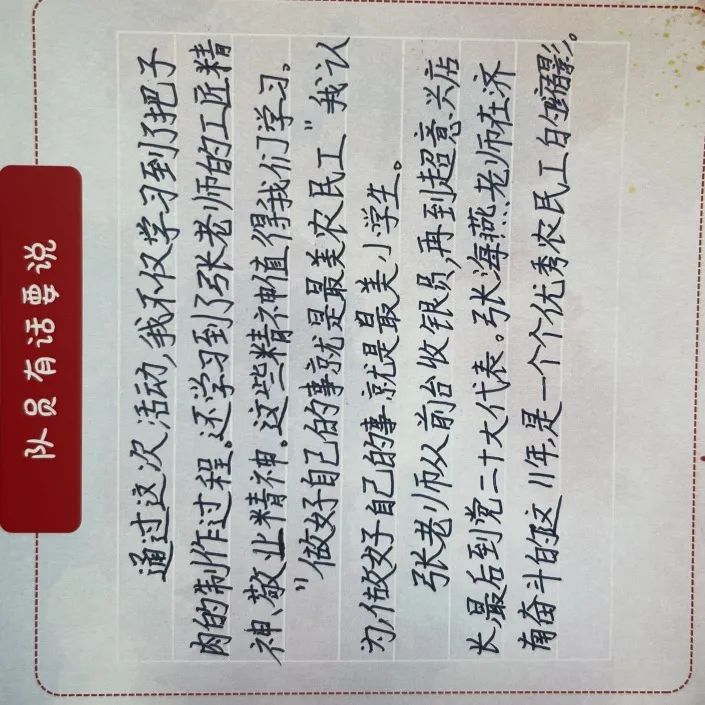 队员有话要说
通过这次活动,我不仅学习到了把子
肉的制作过程。还学习到了张老师的工匠精
神、敬业精神。这些精神值得我们学习。
"做好自己的事就是最美农民工"我认
为,做好自己的事就是最美小学生。
张老师从前台收银员,再到超意兴店
长,最后到党二十大代表。张海燕老师在济
南奋斗的这11年,是一个个优秀农民工的缩影。